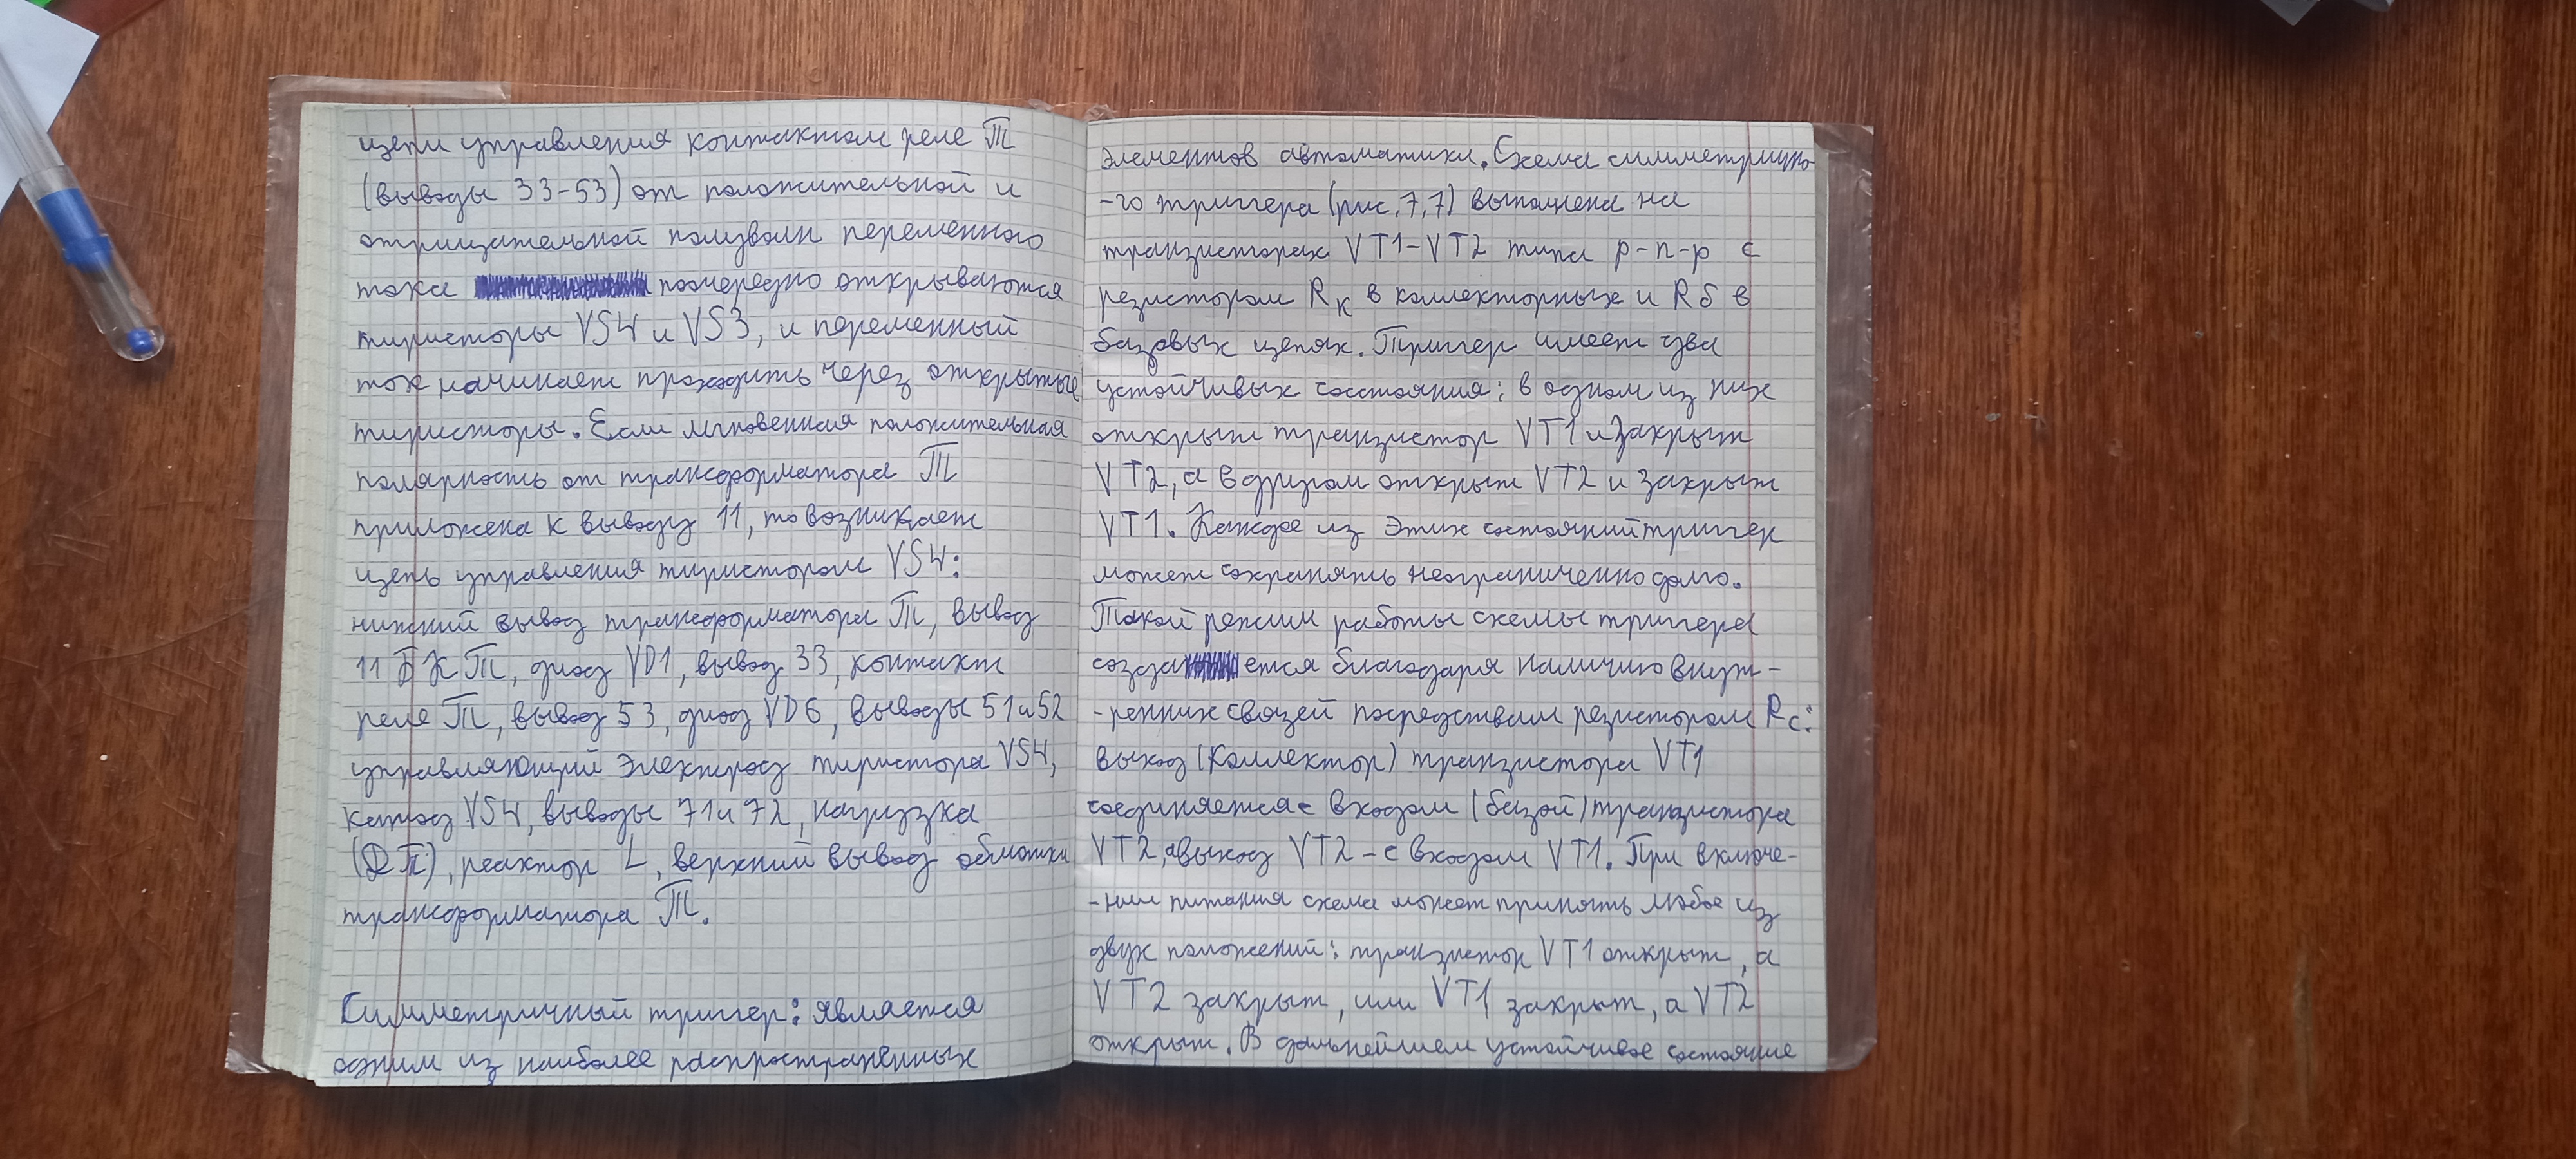 цепи управления контактом реле Т
(выводы 33-53) от положительной и
отрицательной полуволн переменного
тока поочередно открываются
тиристоры VS4 и VS3, и переменный
ток начинает проходить через открытые
тиристоры. Если мгновенная положительная
полярность от трансформатора Т
приложена к выводу 11, то возникает
цепь управления тиристором VS4:
нижний вывод трансформатора Т, вывод
11 БКТ, диод VD1, вывод 33, контакт
реле Т, вывод 53, диод VD6, выводы 51 и 52
управляющий электрод тиристора VS4,
катод VS4, выводы 71 и 72, нагрузка
(ДП), реактор L, верхний вывод обмотки
трансформатора Т.
Симметричный триггер: является
одним из наиболее распространённых
элементов автоматики. Схема симметрично-
-го триггера (рис, 7,7) выполнена на
транзисторах VT1-VT2 типа p-n-p с
резистором Rк в коллекторных и Rб в
базовых цепях. Триггер имеет два
устойчивых состояния: в одном из них
открыт транзистор VT1 и закрыт
VT2, а в другом открыт VT2 и закрыт
VT1. Каждое из этих состояний триггер
может сохранять неограниченно долго.
Такой режим работы схемы тригера
создается благодаря наличию внут-
-ренних связей посредством резистором Rс:
выход (коллектор) транзистора VT1
соединяется с входом (базой) транзистора
VT2, а выход VT2 - с входом VT1. При включе-
-нии питания схема может принять любое из
двух положений: транзистор VT1 открыт, а
VT2 закрыт, или VT1 закрыт, а VT2
открыт. В дальнейшем устойчивое состояние